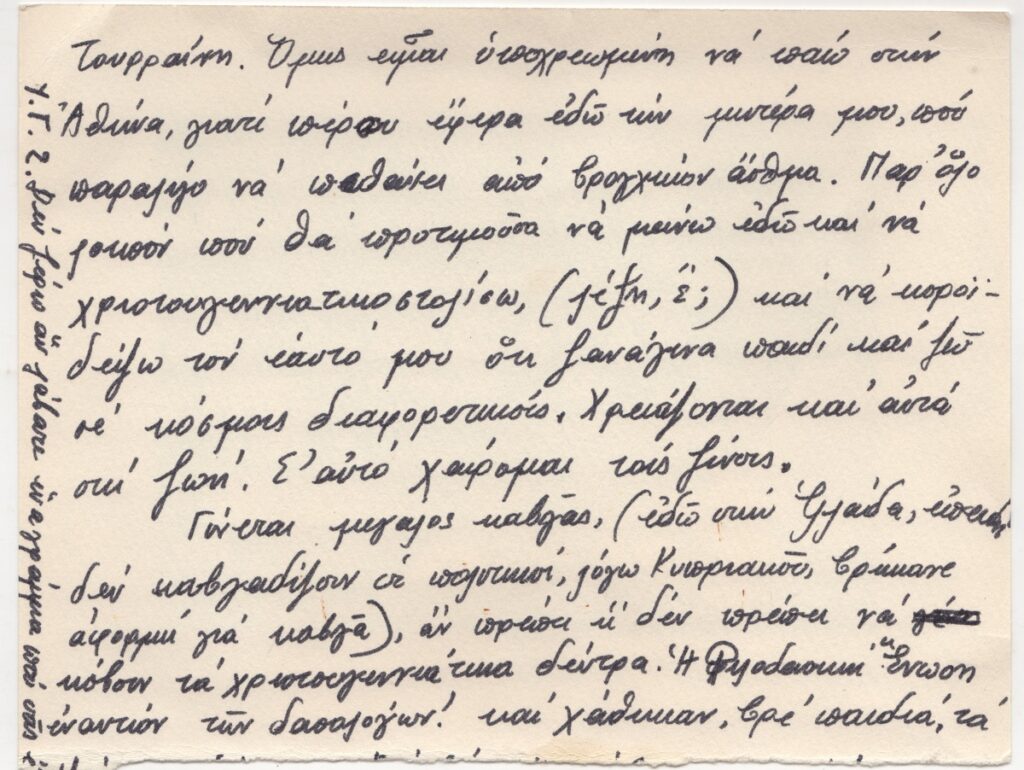 Τουρραίνη. Ὅμως εἶμαι ὑποχρεωμένη νά πάω στήν
Ἀθήνα, γιατί πέρσυ ἔφερα ἐδῶ τήν μητέρα μου, πού
παραλίγο νά πεθάνει ἀπό βρογχικόν ἆσθμα. Παρ' ὅλο
λοιπόν πού θά προτιμοῦσα νά μείνω ἐδῶ καί νά
χριστουγεννιατικοστολίσω, (λέξη, ἔ;) καί νά κοροϊ-
δέψω τόν ἑαυτό μου ὅτι ξανάγινα παιδί καί ζῶ
σέ κόσμους διαφορετικούς. Χρειάζονται καί αὐτά
στή ζωή. Σ' αὐτό χαίρομαι τούς ξένους.
Γίνεται μεγάλος καβγᾶς, (ἐδῶ στήν Ἑλλάδα, ἐπειδή
δέν καβγαδίζουν οἱ πολιτικοί, λόγω Κυπριακοῦ, βρήκανε
ἀφορμή γιά καβγᾶ), ἄν πρέπει ἤ δέν πρέπει νά
κόβουν τά χριστουγεννιάτικα δέντρα. Ἡ Φιλοδασική Ἕνωση
ἐναντίον τῶν δασολόγων! καί χάθηκαν, βρέ παιδιά, τά
Υ.Γ. 2. Δέν ξέρω ἄν λάβατε ἕνα γράμμα πού σᾶς